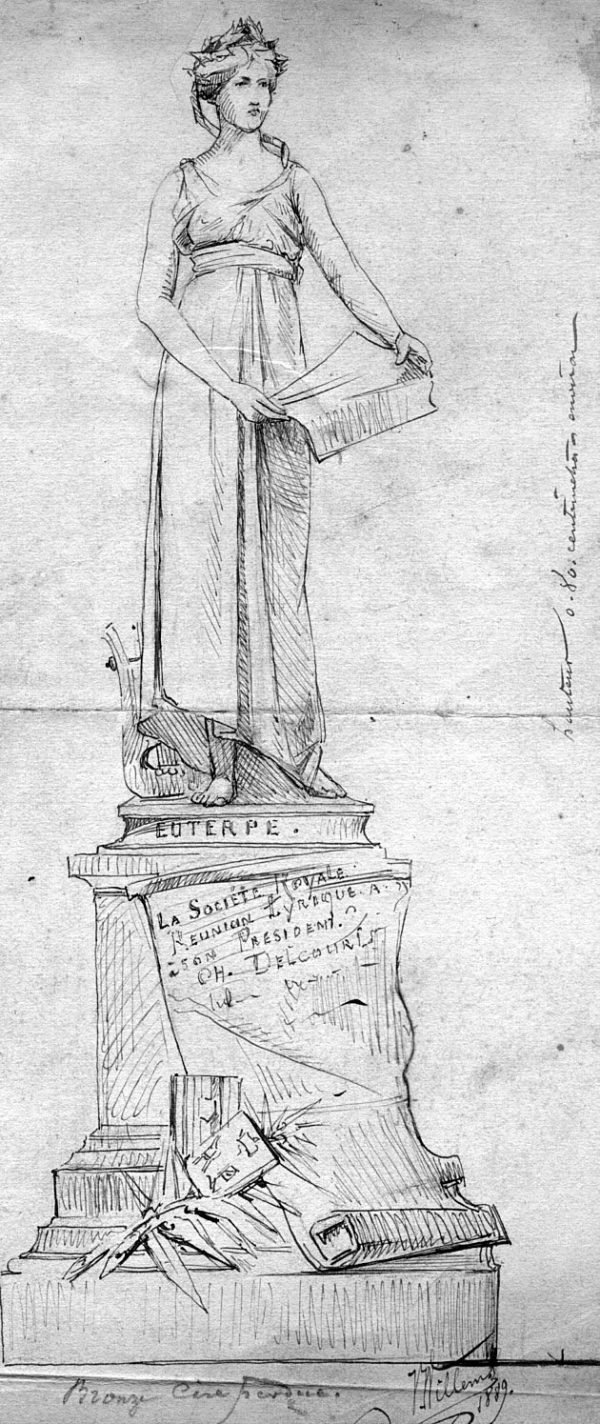 EUTERPE.
LA SOCIÉTÉ ROYALE.
REUNION LYRIQUE. A.
à SON PRESIDENT.
CH. DELCOURT
hauteur 0.80. centimètres environ
Bronze Cire perdue.
JWillems
1889.